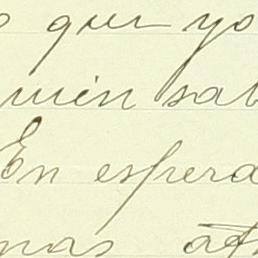 que yo
uién sab
En espera
mas at